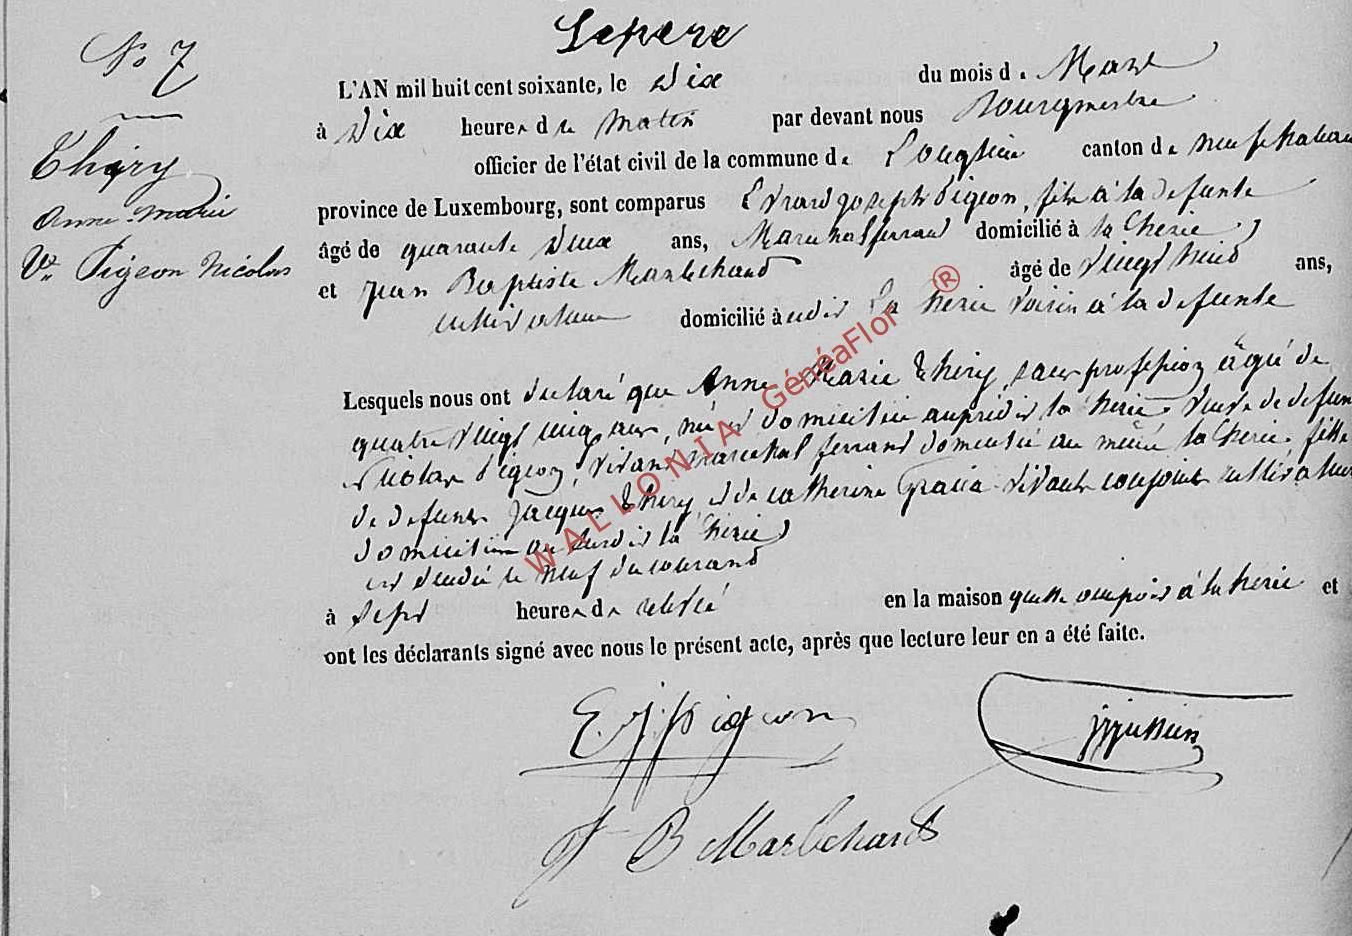 No 7
Thiry
Anne-Marie
Ve Pigeon Nicolas
L'AN mil huit cent soixante, le Dix du mois de Mars
à Dix heures du Matin par devant nous Bourgmestre
officier de l'état civil de la commune de canton de neufchateau
province de Luxembourg, sont comparus Evrard joseph Pigeon, fils à la défunte
âgé de quarante Deux ans, Marechalferrand domicilié à la Chérie
et jean Baptiste Marlechand âgé de Vingt ans,
cultivateur domicilié à udit La Chérie Voisin à la défunte
Lesquels nous ont declaré que Anne Marie Thiry, sans profession âgée de
quatre vingt cinq ans, née et domiciliée la Chérie Veuve de defunt
Nicolas Pigeon, Vivant marechal ferrand domicilié au même la Chérie. fille
de defunts Jacques Thiry et de catherine vivants conjoints cultivateurs
domiciliés la Chérie
est le neuf du courand
à Sept heures de relevé en la maison qu'elle à la Chérie et
ont les déclarants signé avec nous le présent acte, après que lecture leur en a été faite.
E. j. Pigeon
J B Marlechand
WALLONIA GénéaFlor ®